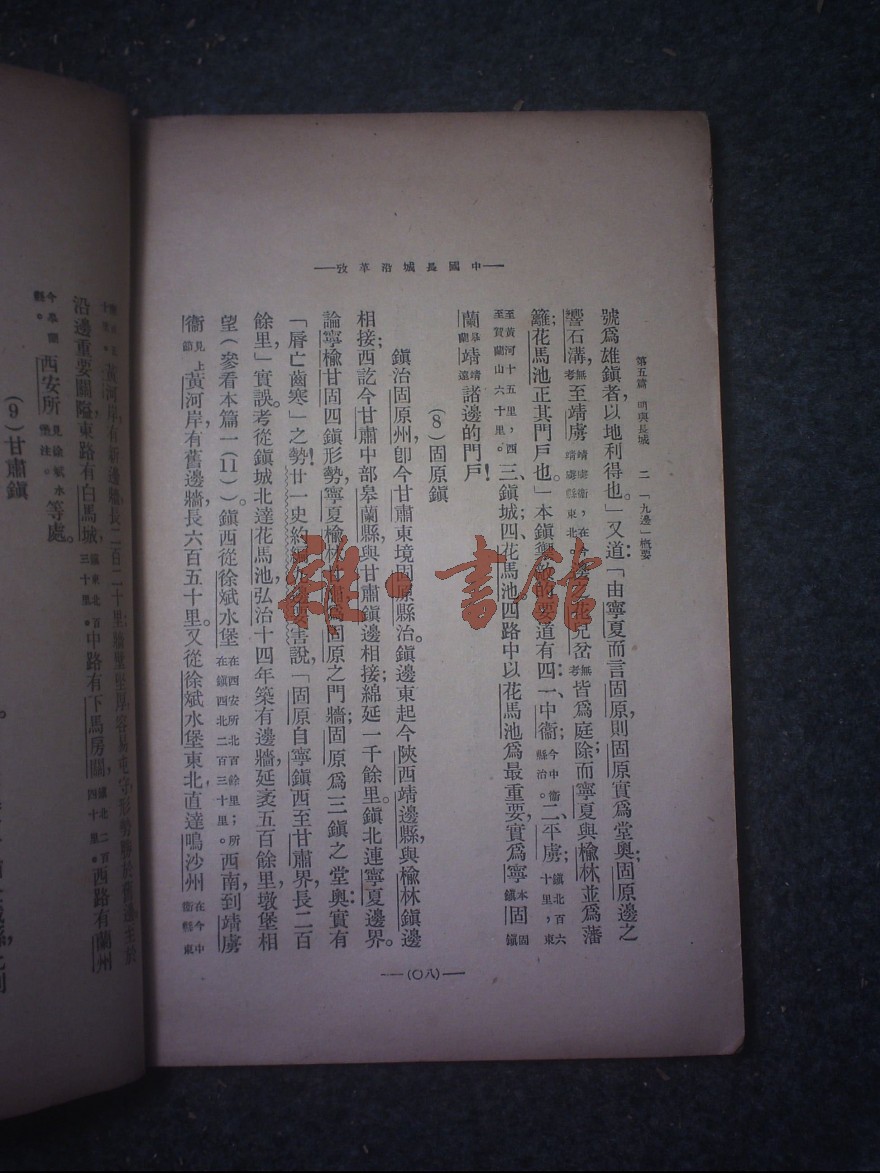 —中國長城沿革攷—
第五篇 明與長城 二 「九邊」概要
號爲雄鎭者，以地利得也。」又道：「由寧夏而言固原，則固原實爲堂奧；固原邊之
響石溝，無考至靖虜靖虜衞，在今靖虜縣東北。花兒岔無考皆爲庭除；而寧夏與榆林並爲藩
籬，花馬池正其門戶也。」本鎭的要道有四：一、中衞今中衞縣治。；二、平虜鎭北百六十里，東
至黃河十五里，西至賀蘭山六十里。；三、鎭城；四、花馬池。四路中以花馬池爲最重要，實爲寧本鎭固固鎭
蘭皋蘭靖靖遠諸邊的門戶！
(8)固原鎭
鎭治固原州，卽今甘肅東境固原縣治。鎭邊東起今陝西靖邊縣，與榆林鎭邊
相接；西訖今甘肅中部皋蘭縣，與甘肅鎭邊相接；綿延一千餘里。鎭北連寧夏邊界。
論寧榆甘固四鎭形勢，寧夏榆林甘肅爲固原之門牆；固原爲三鎭之堂奧；實有
「脣亡齒寒」之勢！廿一史約編害說，「固原自寧鎭西至甘肅界，長二百
餘里」實誤。考從鎭城北達花馬池，弘治十四年築有邊牆，延袤五百餘里，墩堡相
望（參看本篇一(11)）。鎭西從徐斌水堡在西安所北百餘里；所在鎭西北二百三十里。西南到靖虜
衞見上節黃河岸，有舊邊牆，長六百五十里。又從徐斌水堡東北，直達鳴沙州在今中衞縣東
—(八〇)—
黃河岸，有新邊牆，長二百二十里
沿邊重要關隘，東路有白馬城，鎭東北百三十里。中路有下馬房關，鎭北二百四十里。西路有蘭州
今皋蘭縣。西安所見徐斌水堡注。等處。
(9)甘肅鎭
雜·書館